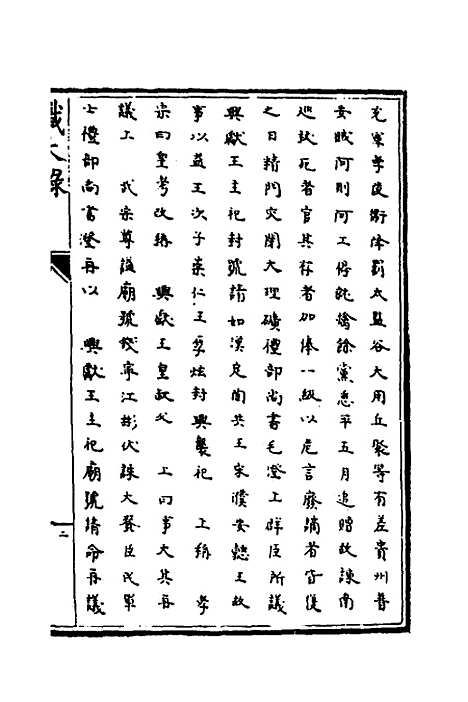 充軍孝陵衛降罰太監谷大用丘聚等有差貴州普
安賊阿則阿工俘䤋擒餘黨悉平五月追贈故諫南
巡試死者官其存者加俸一級以危言廢謫者皆復
之日精門災閏大理礦禮部尚書毛澄上群臣所議
興獻王主祀封號請如漢定陶共王宋濮安懿王故
事以益王次子崇仁王厚炫封興襲祀　上稱　孝
宗曰皇考改稱　興獻王皇叔父　上曰事大其再
議上　武宗尊諡廟號錢寧江彬伏誅大賚臣民軍
士禮部尚書澄再以　興獻王主祀廟號請命再議
識大錄
二